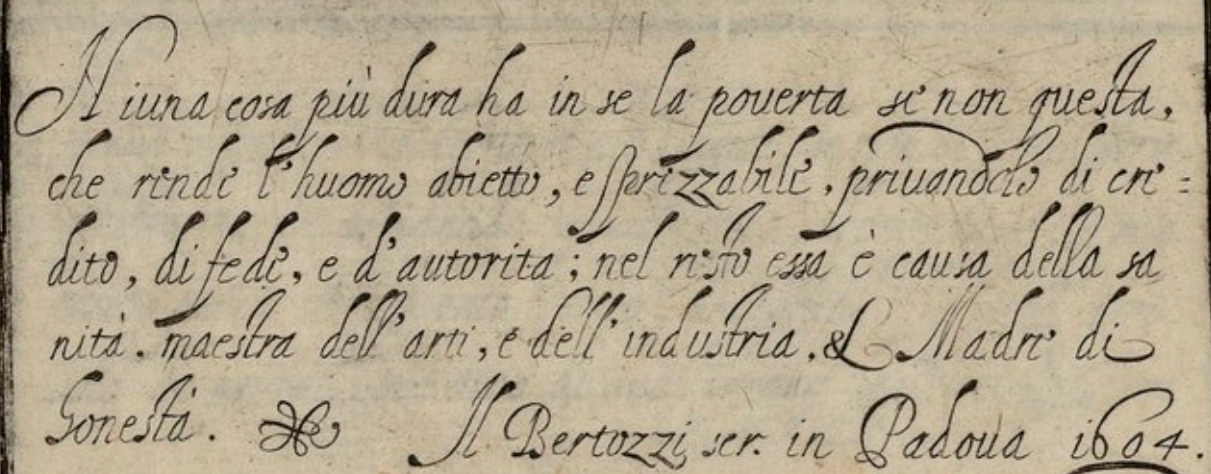 Niuna cosa più dura ha in se la pouerta se non questa,
che rende l'huomo abietto, e sprezzabile, priuandolo di cre=
dito, di fede, e d'autorita; nel resto essa è causa della sa
nità, maestra dell'arti, e dell'industria, & Madre di
honestà. Il Bertozzi scr. in Padoua 1604.